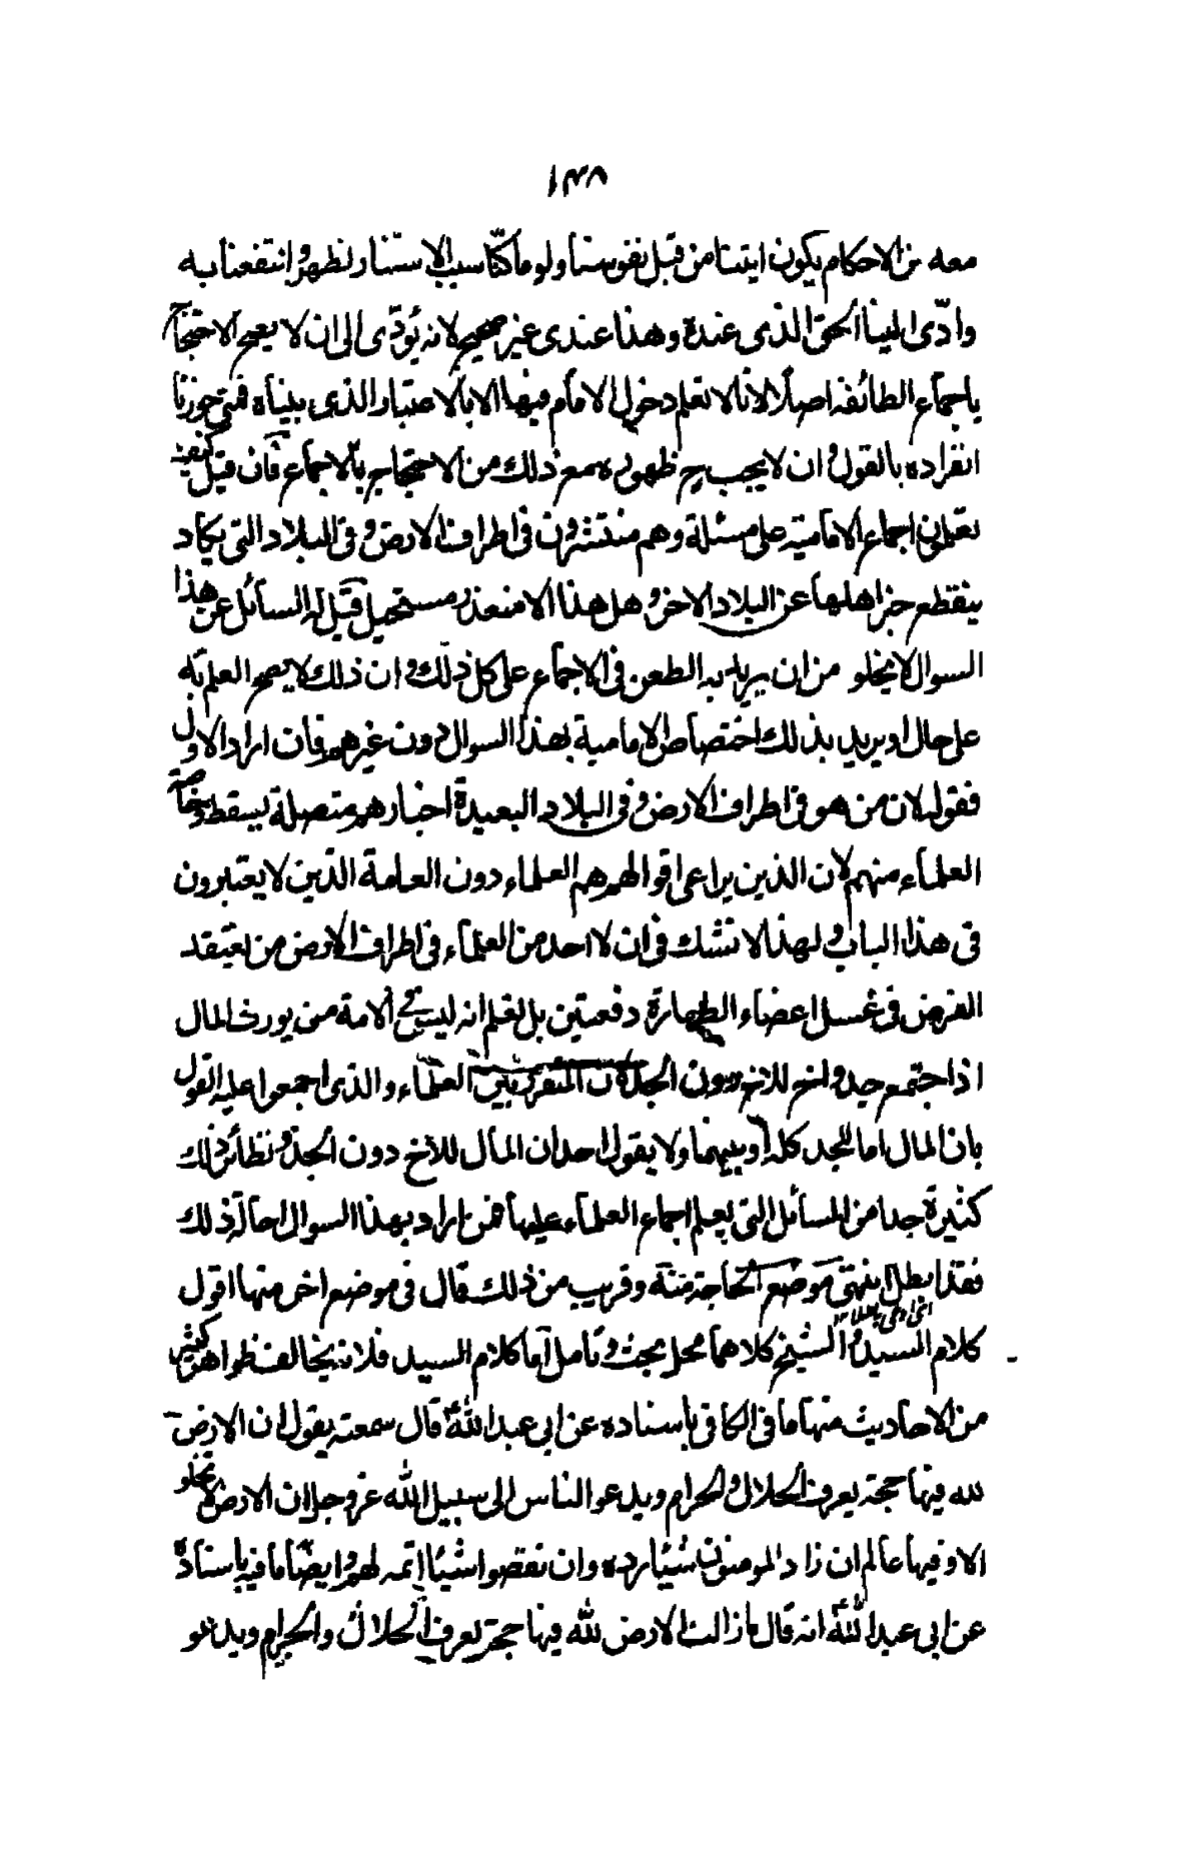 ١٣٨
معه من الاحكام يكون ايتنا من قبل نفوسنا ولو ما كنا سبب الاستتار لظهر وانتفعنا به
وادّى الينا الحق الذى عنده وهذا عندى غير صحيح لانه يؤدّى الى ان لا يصح الاحتجاج
باجماع الطائفة اصلا لانا لا نعلم دخول الامام فيها الا بالاعتبار الذى بيناه فمتى جوزنا
انفراده بالقول وان لا يجب ح ظهوره مع ذلك من الاحتجاج بالاجماع فان قيل كيف
تعلمون اجماع الامامية على مسئلة وهم منتشرون فى اطراف الارض وفى البلاد التى يكاد
ينقطع خبر اهلها عن البلاد الاخر وهل هذا الا متعذر مستحيل قيل له السائل عن هذا
السوال لا يخلو من ان يريد به الطعن فى الاجماع على كل ذلك وان ذلك لا يصح العلم به
على حال او يريد بذلك اختصاص الامامية بهذا السوال دون غيرهم فان اراد الاول
فقوله لان من هو فى اطراف الارض وفى البلاد البعيدة اخبارهم متصلة يسقط وخاصة
العلماء منهم لان الذين يراعى اقوالهم هم العلماء دون العامة الذين لا يعتبرون
فى هذا الباب ولهذا لا نشك فى ان لا احد من العلماء فى اطراف الارض من يعتقد
الفرض فى غسل اعضاء الطهارة دفعتين بل نعلم انه ليس فى الامة من يورث المال
اذا اجتمع جد واخ للاخ دون الجد لان المتقرر بين العلماء والذى اجمعوا عليه القول
بان المال اما للجد كله او بينهما ولا يقول احد ان المال للاخ دون الجد ونظائر ذلك
كثيرة جدا من المسائل التى يعلم اجماع العلماء عليها فمن اراد بهذا السوال احالة ذلك
فقد ابطل انتهى موضع الحاجة منه وقريب من ذلك قال فى موضع اخر منها اقول
كلام السيد والشيخ كلاهما محل بحث وتأمل اما كلام السيد فلانه يخالف ظواهر كثير
من الاحاديث منها ما فى الكافى باسناده عن ابى عبد الله قال سمعته يقول ان الارض
لله فيها حجة يعرف الحلال والحرام ويدعو الناس الى سبيل الله عز وجل ان الارض لا تخلو
الا وفيها عالم ان زاد المومنون شيئا رده وان نقصوا شيئا اتمه لهم وايضا ما فيه باسناده
عن ابى عبد الله انه قال ما زالت الارض لله فيها حجة يعرف الحلال والحرام ويدعو